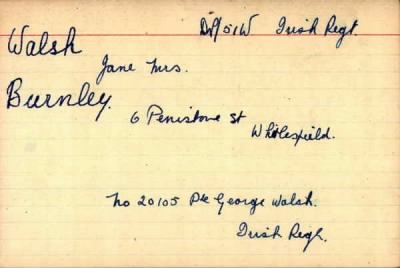 Walsh
D.P/51W Irish Regt.
Jane Mrs.
Burnley.
6 Penistone St
Whitlesfield.
No 20105 Pte George Walsh.
Irish Regt.